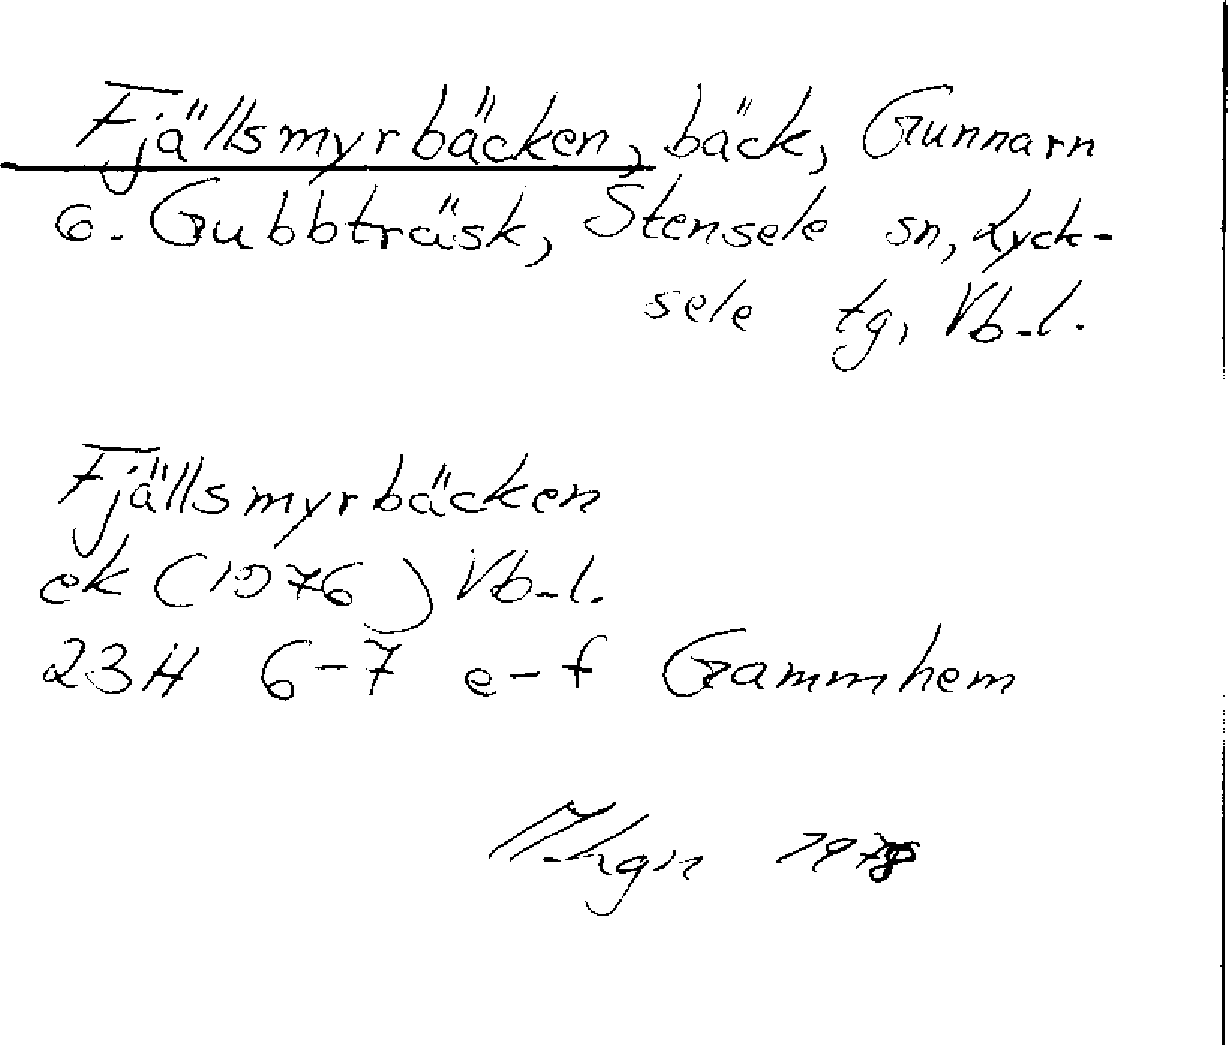 Fjällsmyrbäcken, bäck, Gunnarn
o. Gubbträsk, Stensele sn, Lyck-
sele tg, Vb-l.
Fjällsmyrbäcken
ek (1976) Vb-l.
23H 6-7 e-f Grammhem